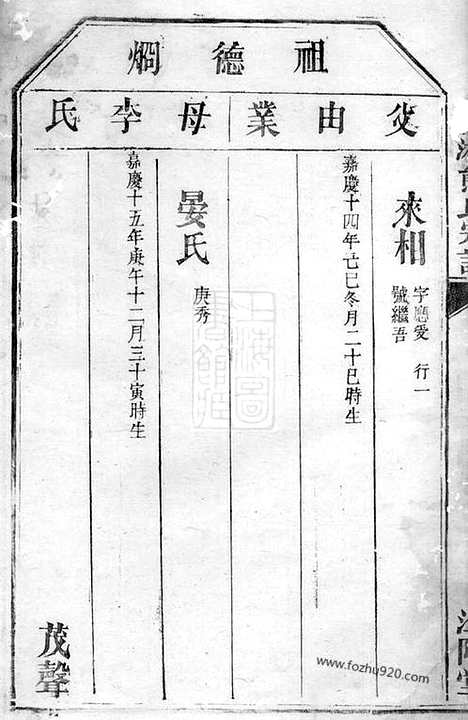 祖德炯
父由業
母李氏
來相
字應愛 行一
號繼吾
嘉慶十四年亡巳冬月二十巳時生
晏氏
庚秀
嘉慶十五年庚午十二月三十寅時生
茂聲
上海圖
書館藏
www.fozhu920.com